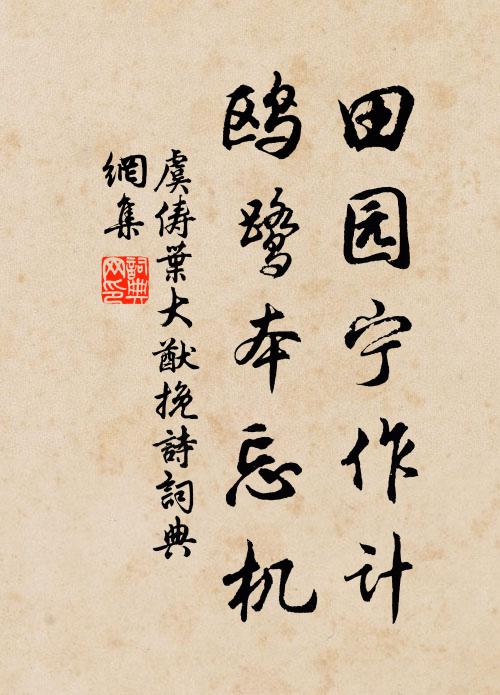 田园宁作计
鸥鹭本忘机
虞俦葉大猷挽詩詞典
網集
詞典
网印